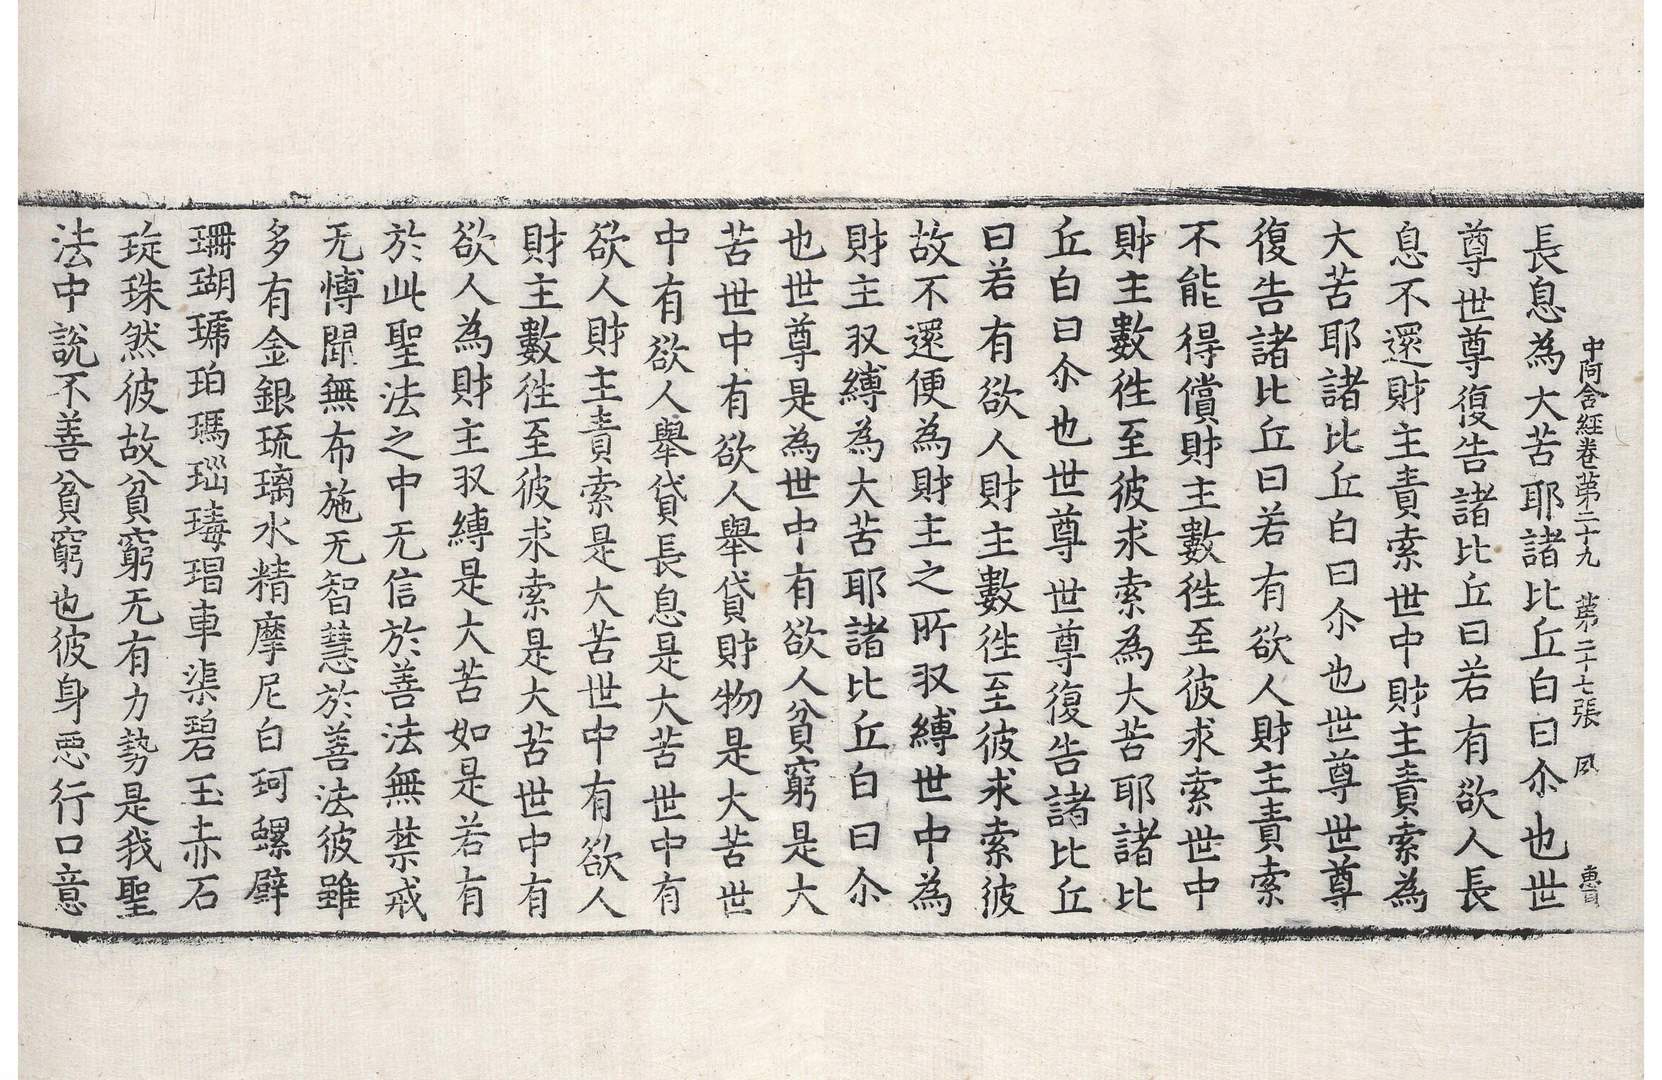 中阿含經卷第二十九　第二十七張　風
長息為大苦耶諸比丘白曰尒也世
尊世尊復告諸比丘曰若有欲人長
息不還財主責索世中財主責索為
大苦耶諸比丘白曰尒也世尊世尊
復告諸比丘曰若有欲人財主責索
不能得償財主數徃至彼求索世中
財主數徃至彼求索為大苦耶諸比
丘白曰尒也世尊世尊復告諸比丘
曰若有欲人財主數徃至彼求索彼
故不還便為財主之所収縛世中為
財主収縛為大苦耶諸比丘白曰尒
也世尊是為世中有欲人貧窮是大
苦世中有欲人舉貸財物是大苦世
中有欲人舉貸長息是大苦世中有
欲人財主責索是大苦世中有欲人
財主數徃至彼求索是大苦世中有
欲人為財主収縛是大苦如是若有
於此聖法之中无信於善法無禁戒
无愽聞無布施无智慧於善法彼雖
多有金銀琉璃水精摩尼白珂螺璧
珊瑚琥珀瑪瑙瑇瑁車渠碧玉赤石
琁珠然彼故貧窮无有力勢是我聖
法中說不善貧窮也彼身惡行口意